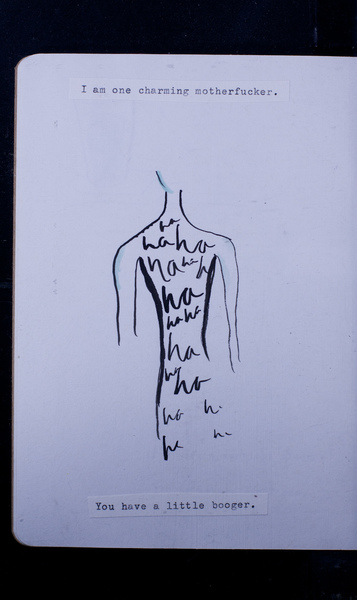 I am one charming motherfucker.
ha
ha ha
ha ha h
ha
ha ha
ha
ha
ha
ha h
ha
You have a little booger.